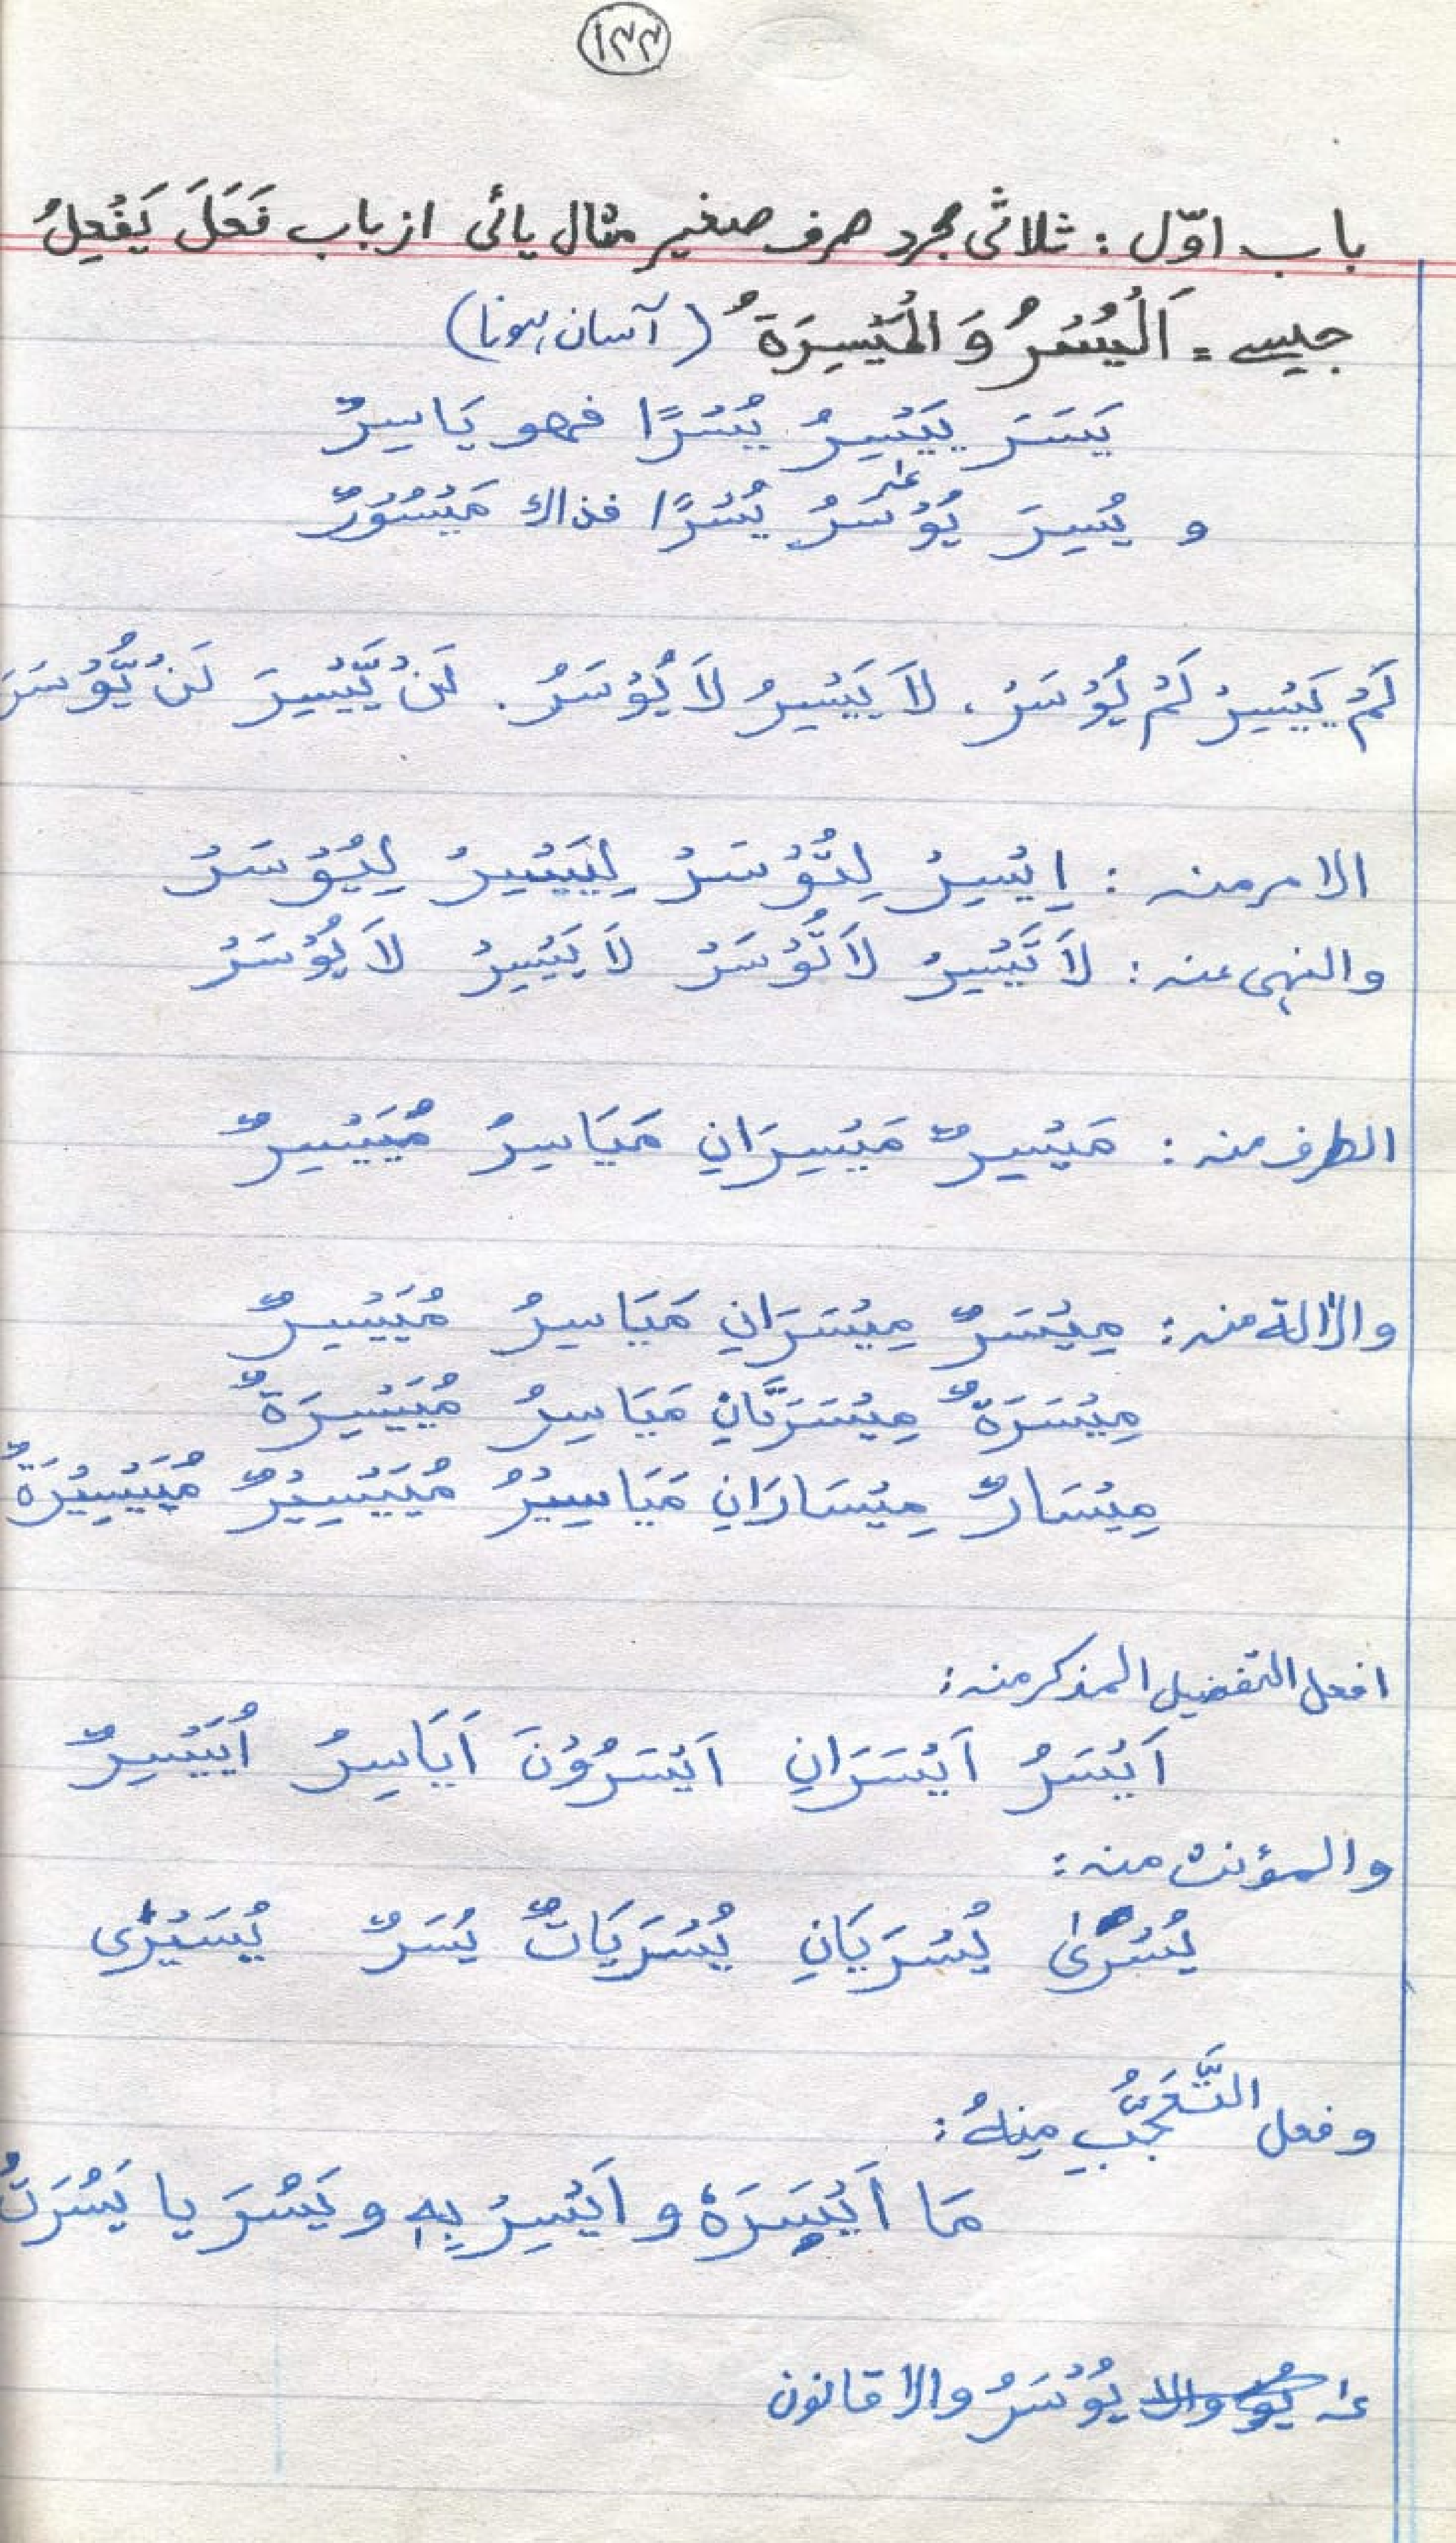 ۱۳۳
باب اوّل : ثلاثی مجرد صرف صغیر مثال یائی از باب فَعَلَ یَفْعِلُ
جیسے = اَلْیُسْرُ وَ الْمَیْسِرَةُ (آسان ہونا)
یَسَرَ یَیْسِرُ یُسْرًا فھو یَاسِرٌ
و یُسِرَ یُوْسَرُ عـ۱ یُسْرًا فذاك مَیْسُوْرٌ
لَمْ یَیْسِرْ لَمْ یُوْسَرْ . لَا یَیْسِرُ لَا یُوْسَرُ . لَنْ یَّیْسِرَ لَنْ یُّوْسَرَ
الامر منہ : اِیْسِرْ لِتُوْسَرْ لِیَیْسِرْ لِیُوْسَرْ
والنہی عنہ : لَا تَیْسِرْ لَا تُوْسَرْ لَا یَیْسِرْ لَا یُوْسَرْ
الظرف منہ : مَیْسِرٌ مَیْسِرَانِ مَیَاسِرُ مُیَیْسِرٌ
والاٰلة منہ : مِیْسَرٌ مِیْسَرَانِ مَیَاسِرُ مُیَیْسِرٌ
مِیْسَرَةٌ مِیْسَرَتَانِ مَیَاسِرُ مُیَیْسِرَةٌ
مِیْسَارٌ مِیْسَارَانِ مَیَاسِیْرُ مُیَیْسِیْرٌ مُیَیْسِیْرَةٌ
افعل التفضیل المذکر منہ :
اَیْسَرُ اَیْسَرَانِ اَیْسَرُوْنَ اَیَاسِرُ اُیَیْسِرٌ
والمؤنث منہ :
یُسْرٰی یُسْرَیَانِ یُسْرَیَاتٌ یُسَرٌ یُسَیْرٰی
و فعل التَّعَجُّبِ مِنہُ :
مَا اَیْسَرَہٗ و اَیْسِرْ بِہٖ و یَسُرَ یا یَسُرَتْ
عـ۱ یُوْسَرُ والا قانون